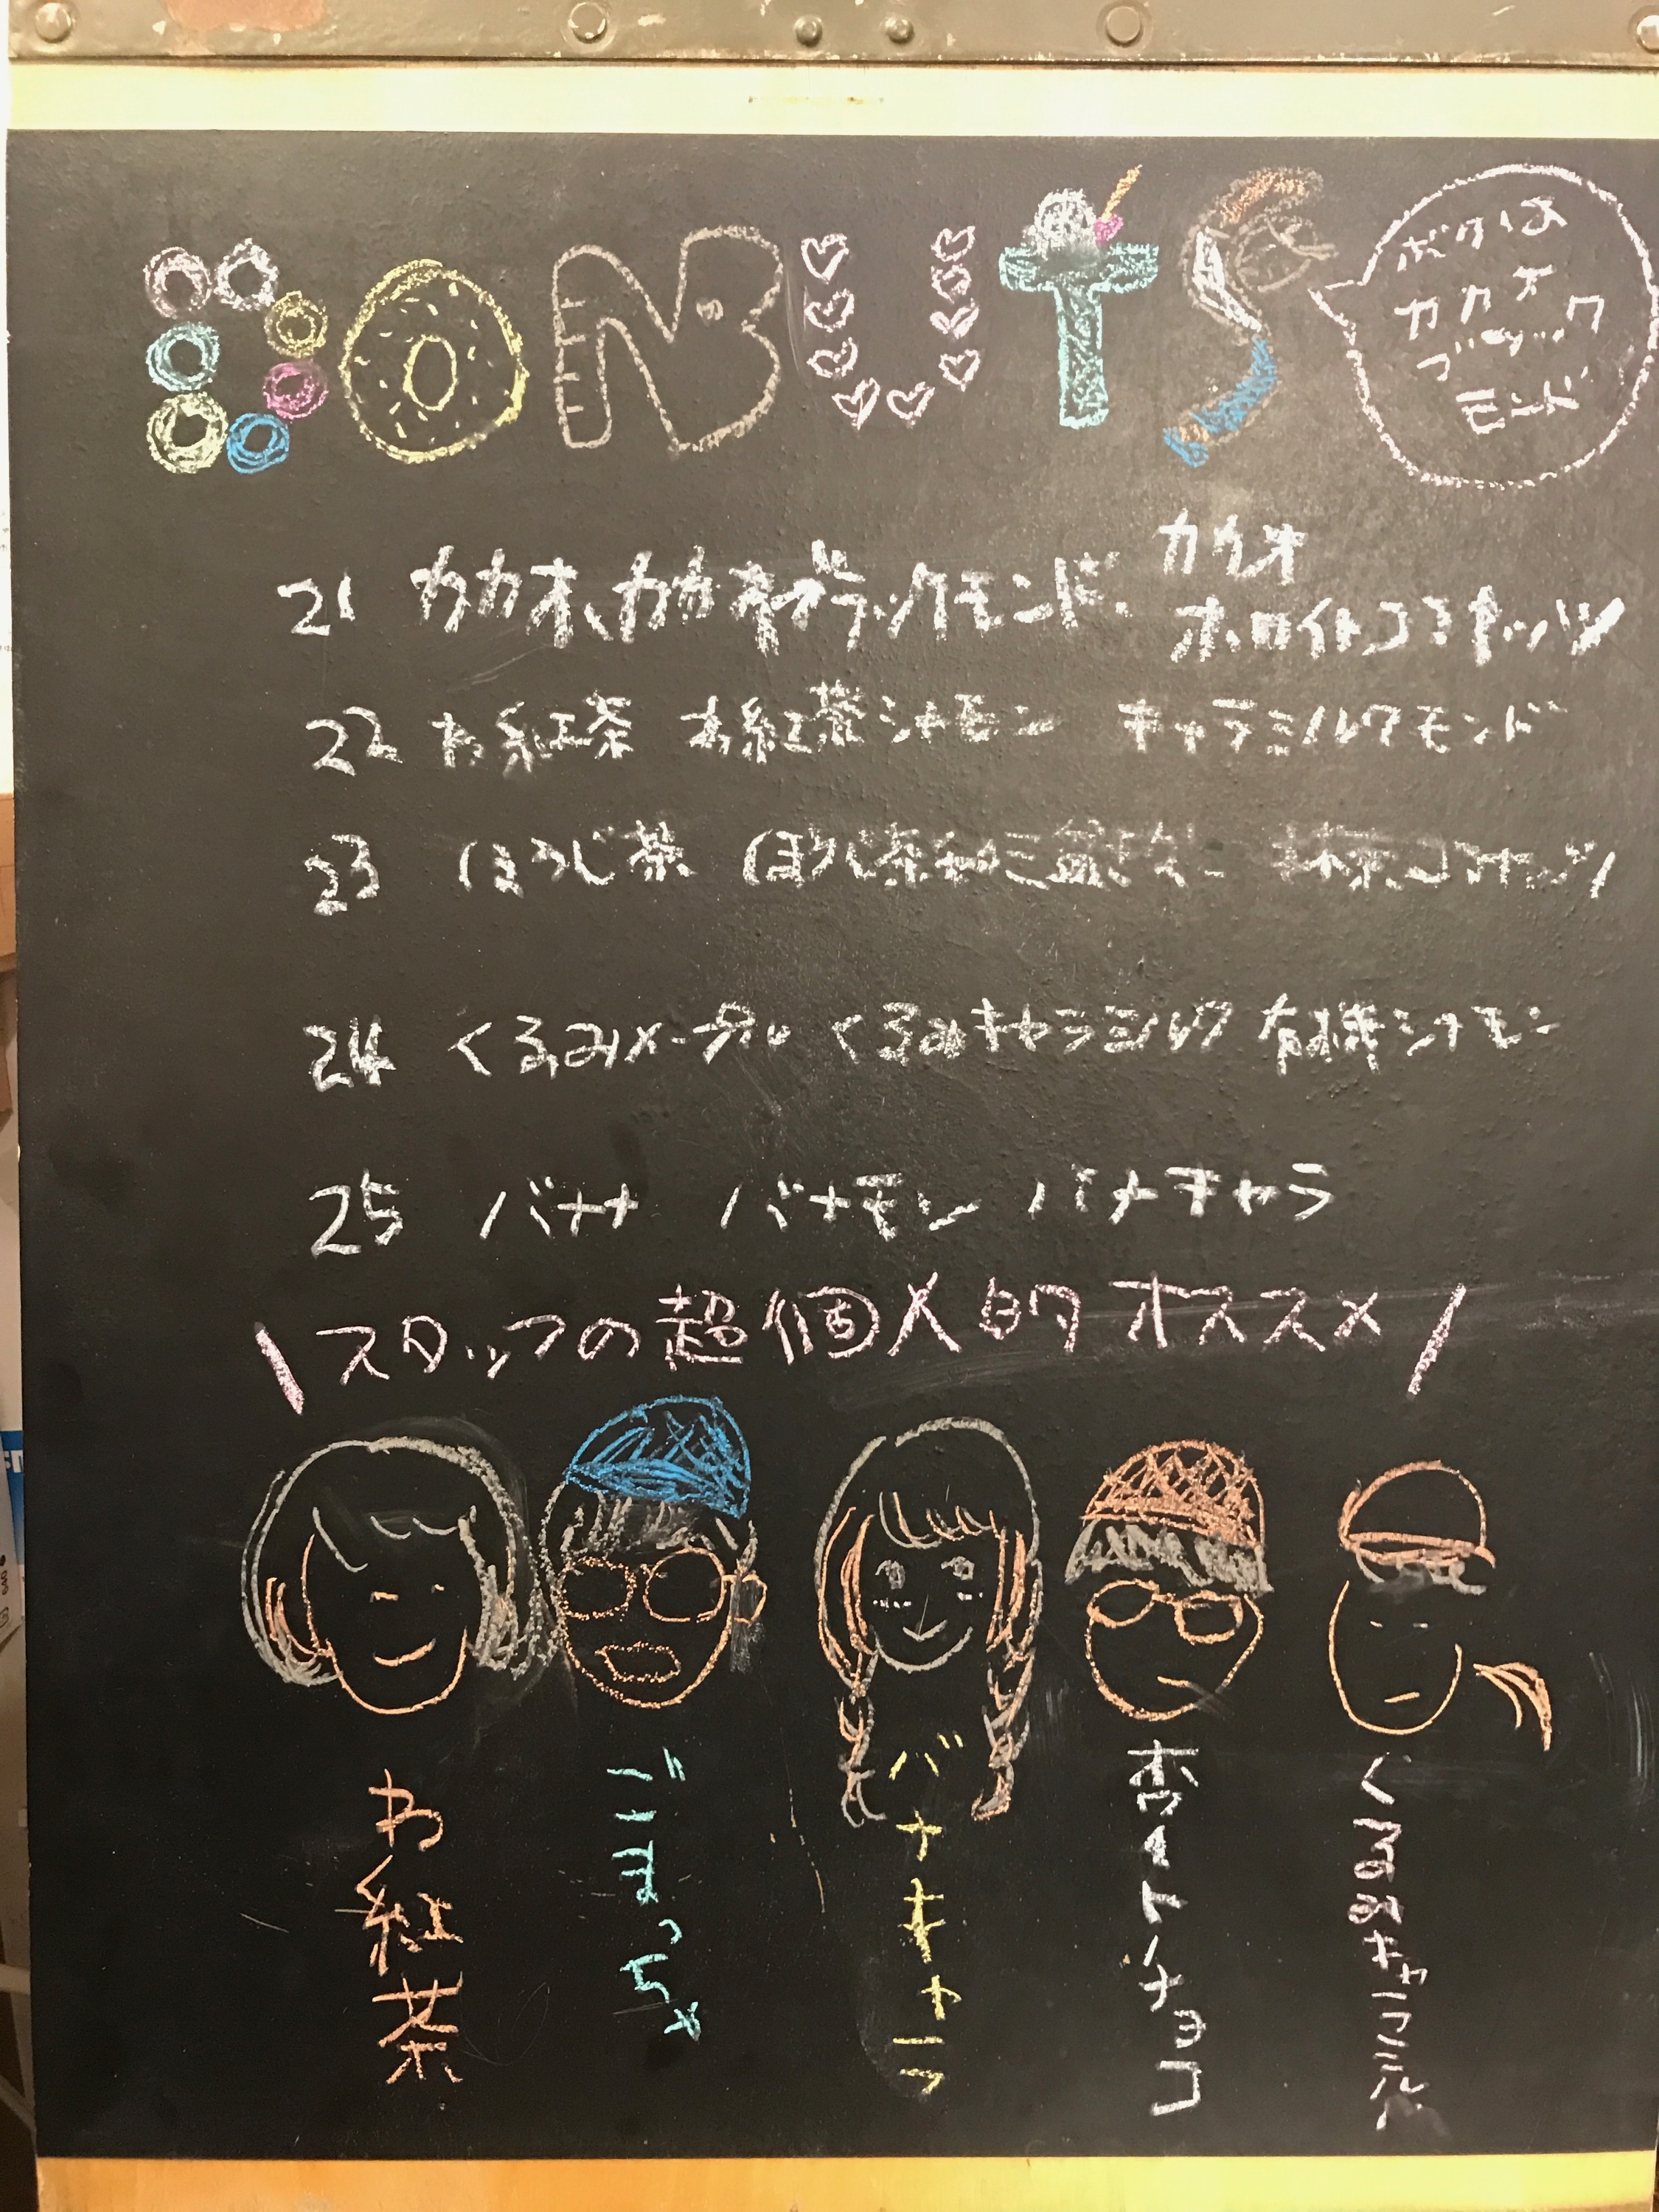 DONUTS
ボクは
カカオ
ブラック
モンド
21 カカオ、カカオブラックモンド、カカオ
ホワイトココナッツ
22 お紅茶 お紅茶シナモン キャラミルクモンド
23 ほうじ茶 ほうじ茶和三盆きなこ 抹茶ココナッツ
24 くるみメープル くるみキャラミルク 有機シナモン
25 バナナ バナモン バナキャラ
\スタッフの超個人的オススメ/
お紅茶
ごまっちゃ
バナキャラ
杏イトチョコ
くるみキャラミルク